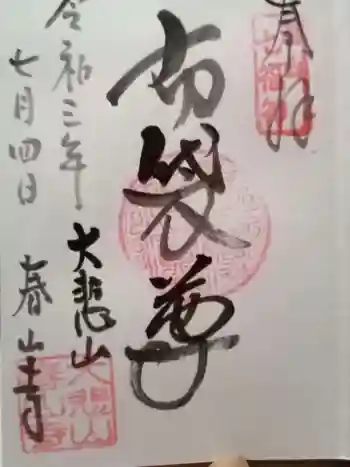 奉拝
布袋尊
令和三年
七月四日
大悲山
春山寺